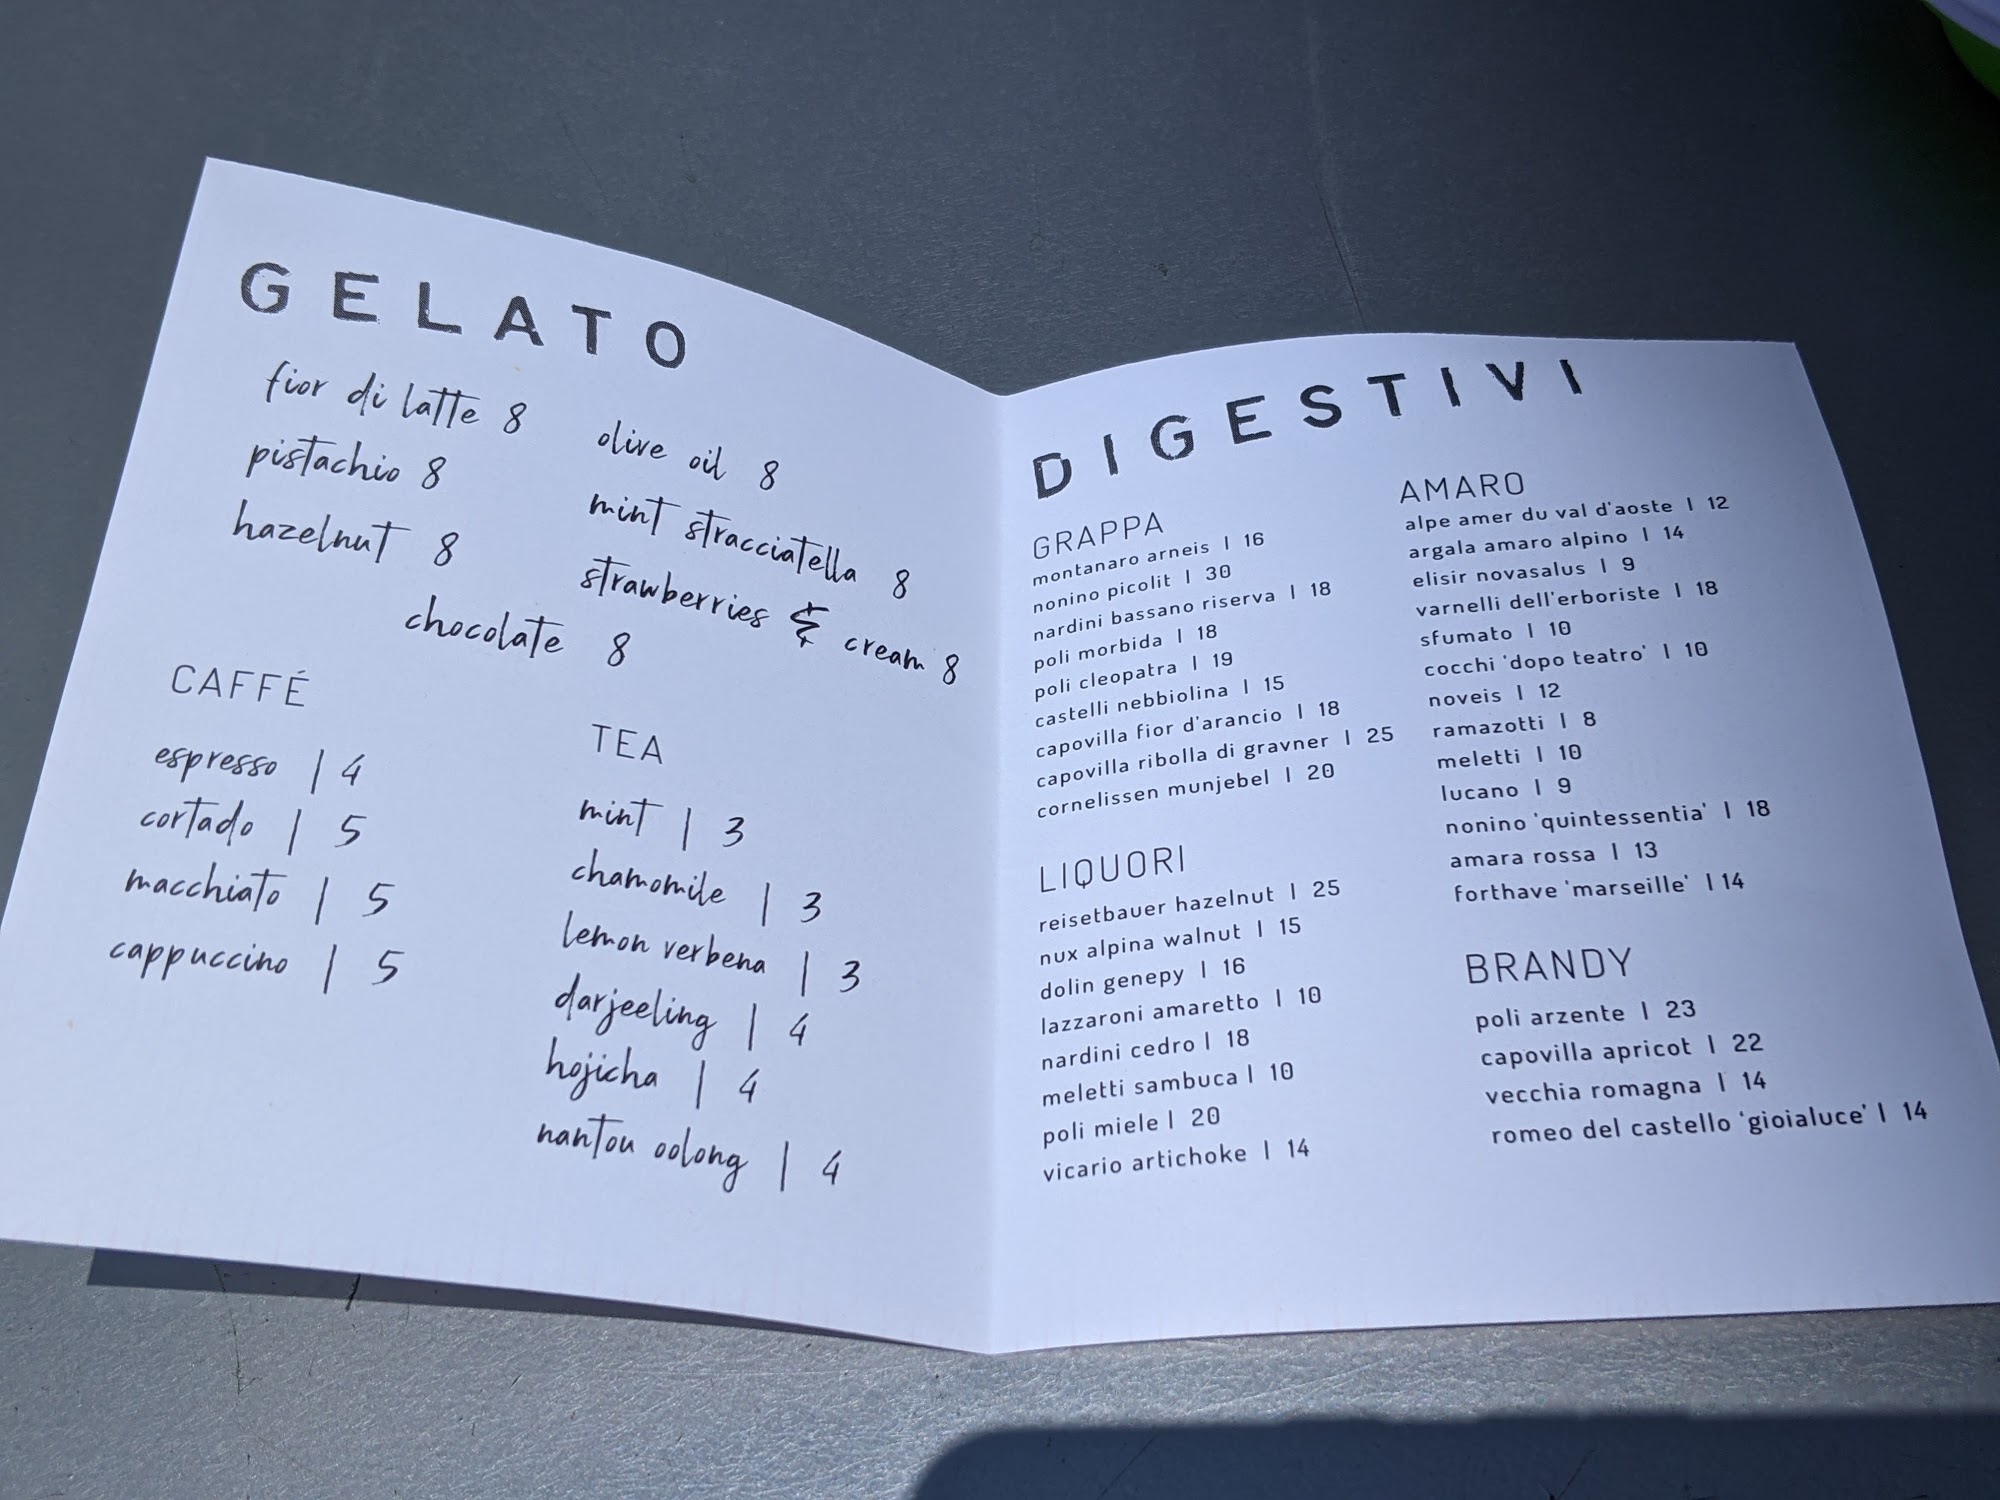 GELATO
fior di latte 8
pistachio 8
hazelnut 8
olive oil 8
mint stracciatella 8
strawberries & cream 8
chocolate 8
CAFFÉ
espresso | 4
cortado | 5
macchiato | 5
cappuccino | 5
TEA
mint | 3
chamomile | 3
lemon verbena | 3
darjeeling | 4
hojicha | 4
nantou oolong | 4
DIGESTIVI
GRAPPA
montanaro arneis | 16
nonino picolit | 30
nardini bassano riserva | 18
poli morbida | 18
poli cleopatra | 19
castelli nebbiolina | 15
capovilla fior d'arancio | 18
capovilla ribolla di gravner | 25
cornelissen munjebel | 20
LIQUORI
reisetbauer hazelnut | 25
nux alpina walnut | 15
dolin genepy | 16
lazzaroni amaretto | 10
nardini cedro | 18
meletti sambuca | 10
poli miele | 20
vicario artichoke | 14
AMARO
alpe amer du val d'aoste | 12
argala amaro alpino | 14
elisir novasalus | 9
varnelli dell'erboriste | 18
sfumato | 10
cocchi 'dopo teatro' | 10
noveis | 12
ramazotti | 8
meletti | 10
lucano | 9
nonino 'quintessentia' | 18
amara rossa | 13
forthave 'marseille' | 14
BRANDY
poli arzente | 23
capovilla apricot | 22
vecchia romagna | 14
romeo del castello 'gioialuce' | 14